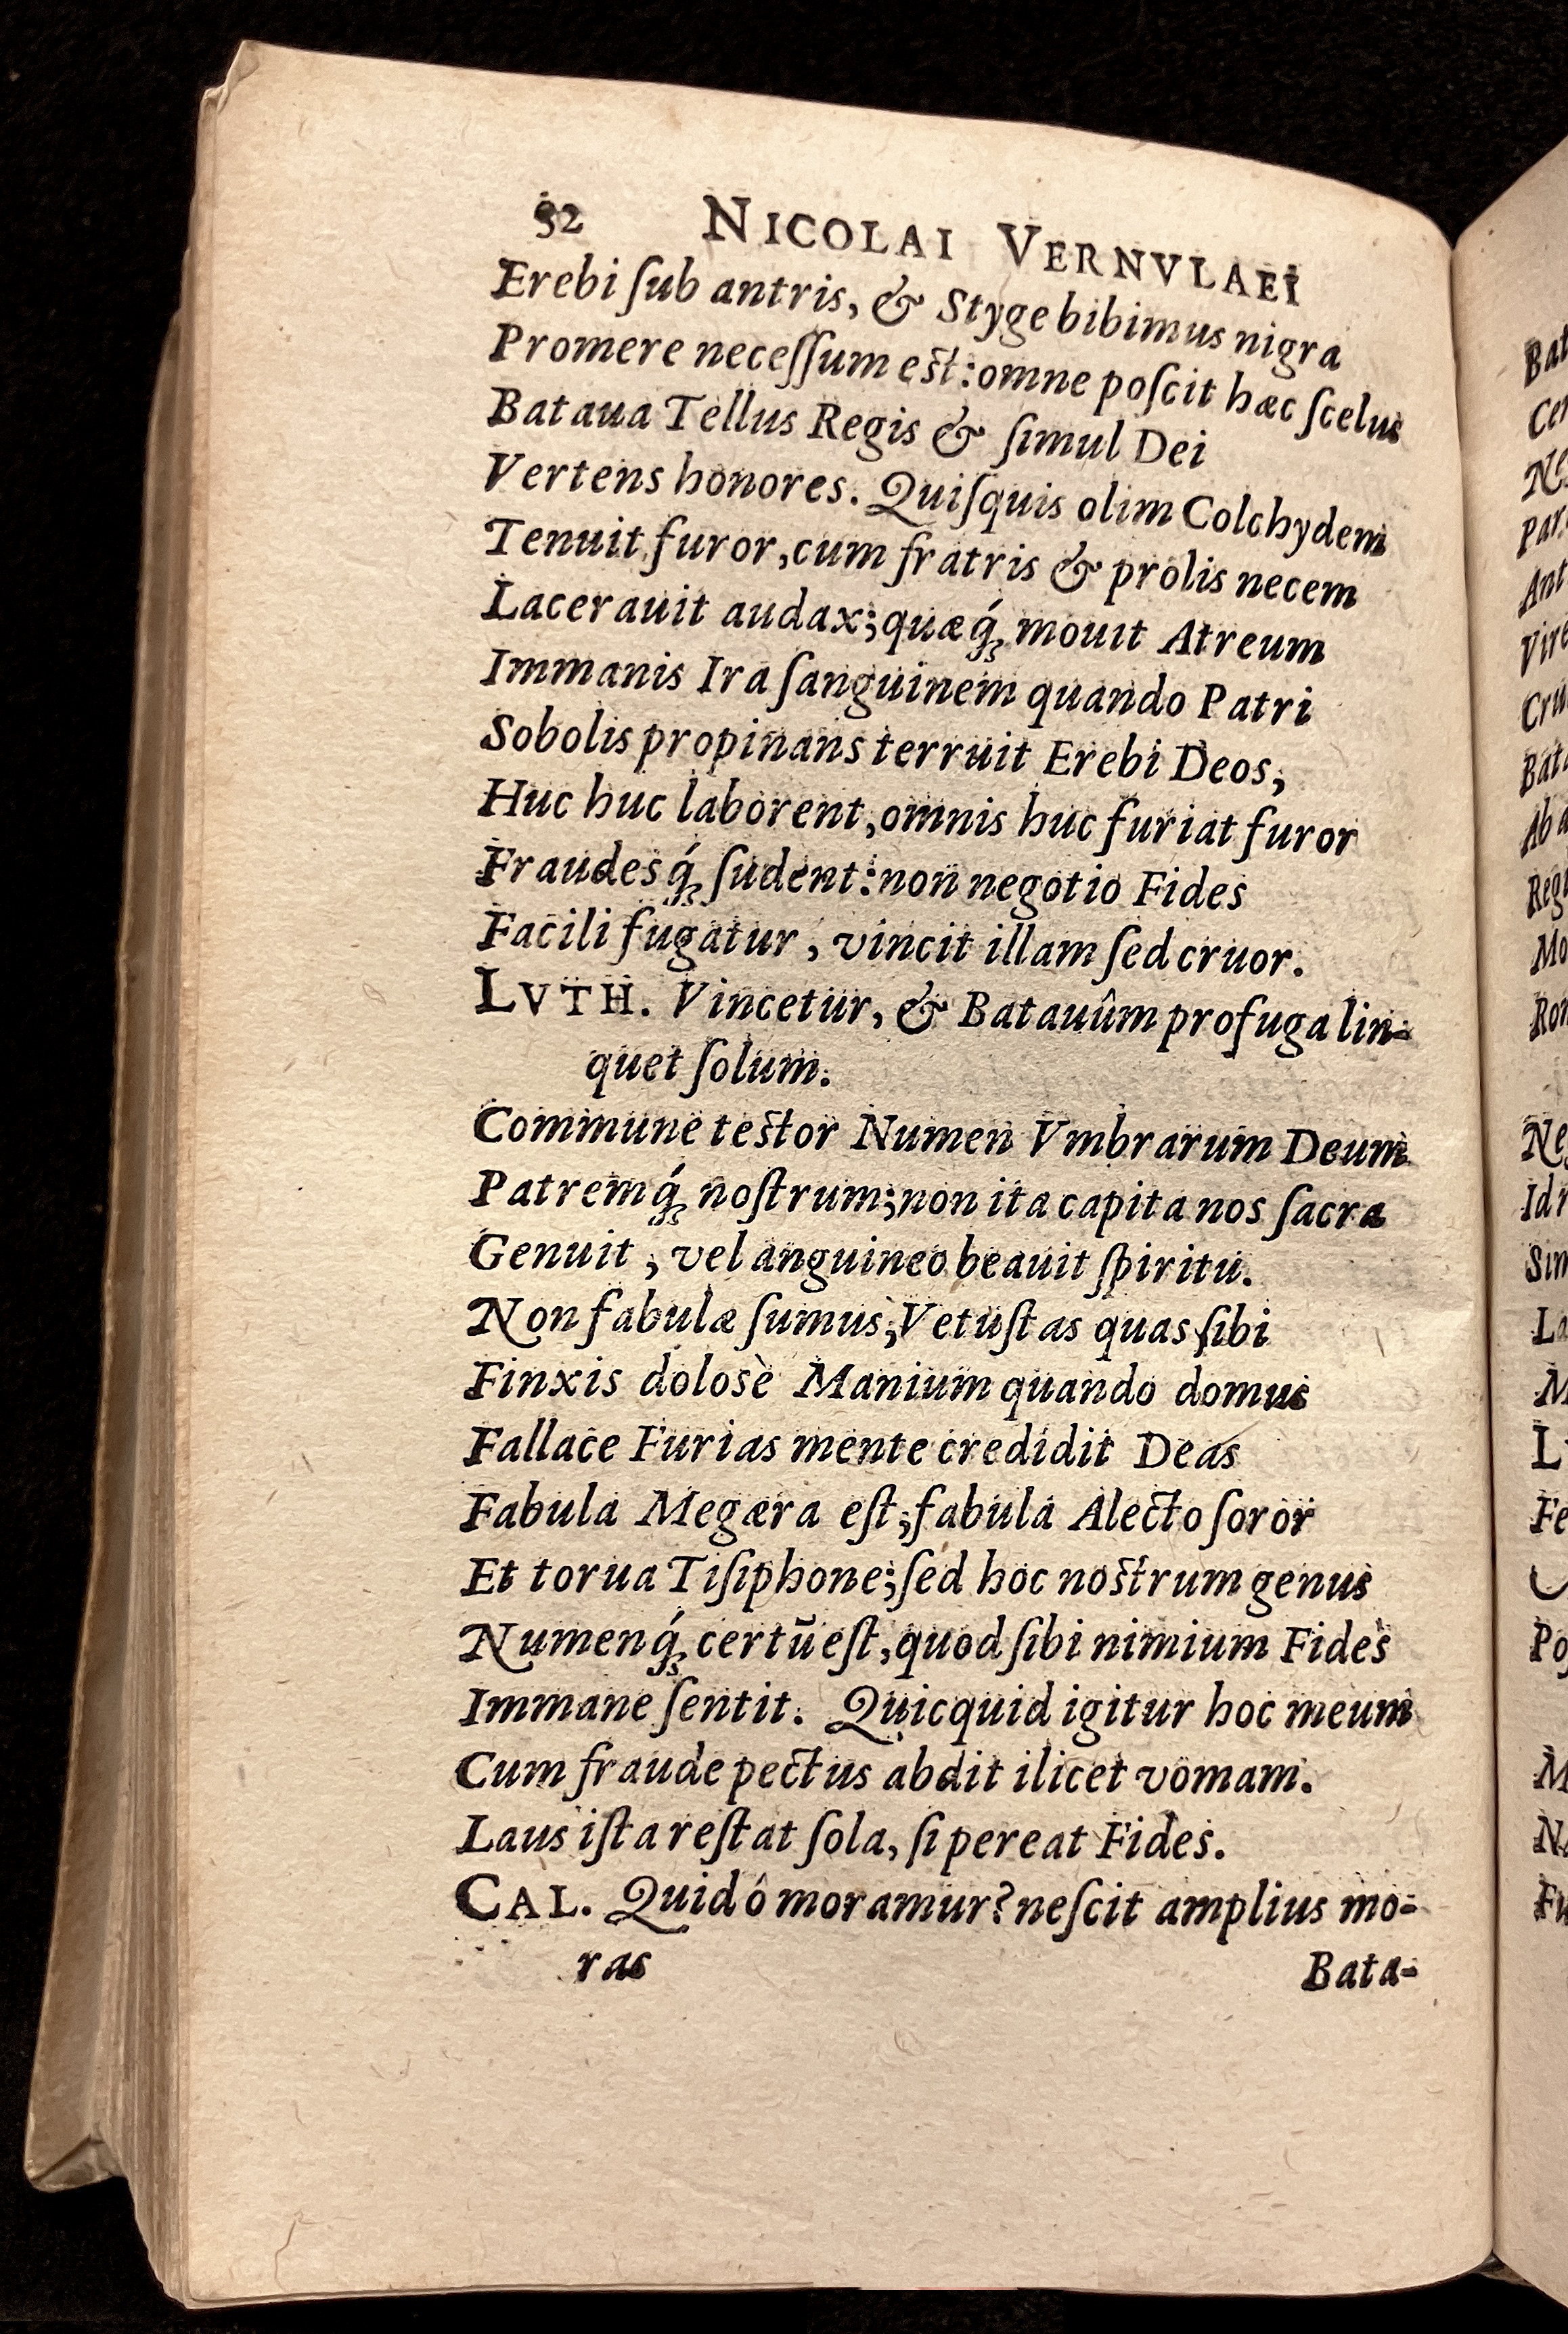 52 NICOLAI VERNVLAEI
Erebi ſub antris, & Styge bibimus nigra
Promere neceſſum est: omne poſcit hæc ſcelus
Bataua Tellus Regis & ſimul Dei
Vertens honores. Quiſquis olim Colchydem
Tenuit furor, cum fratris & prolis necem
Lacerauit audax; quæq́ꝫ mouit Atreum
Immanis Ira ſanguinem quando Patri
Sobolis propinans terruit Erebi Deos,
Huc huc laborent, omnis huc furiat furor
Fraudesq́ꝫ ſudent: non negotio Fides
Facili fugatur, vincit illam ſed cruor.
LVTH. Vincetur, & Batauûm profuga lin-
quet ſolum.
Commune testor Numen Vmbrarum Deum
Patremq́ꝫ noſtrum; non ita capita nos ſacra
Genuit, vel anguineo beauit ſpiritu.
Non fabulæ ſumus, Vetuſtas quas ſibi
Finxis dolosè Manium quando domus
Fallace Furias mente credidit Deas
Fabula Megæra eſt; fabula Alecto ſoror
Et torua Tiſiphone; ſed hoc nostrum genus
Numenq́ꝫ certū eſt, quod ſibi nimium Fides
Immane ſentit. Quicquid igitur hoc meum
Cum fraude pectus abdit ilicet vomam.
Laus iſta reſtat ſola, ſi pereat Fides.
CAL. Quid ó moramur? neſcit amplius mo-
ras
Bata-
Ne
Po